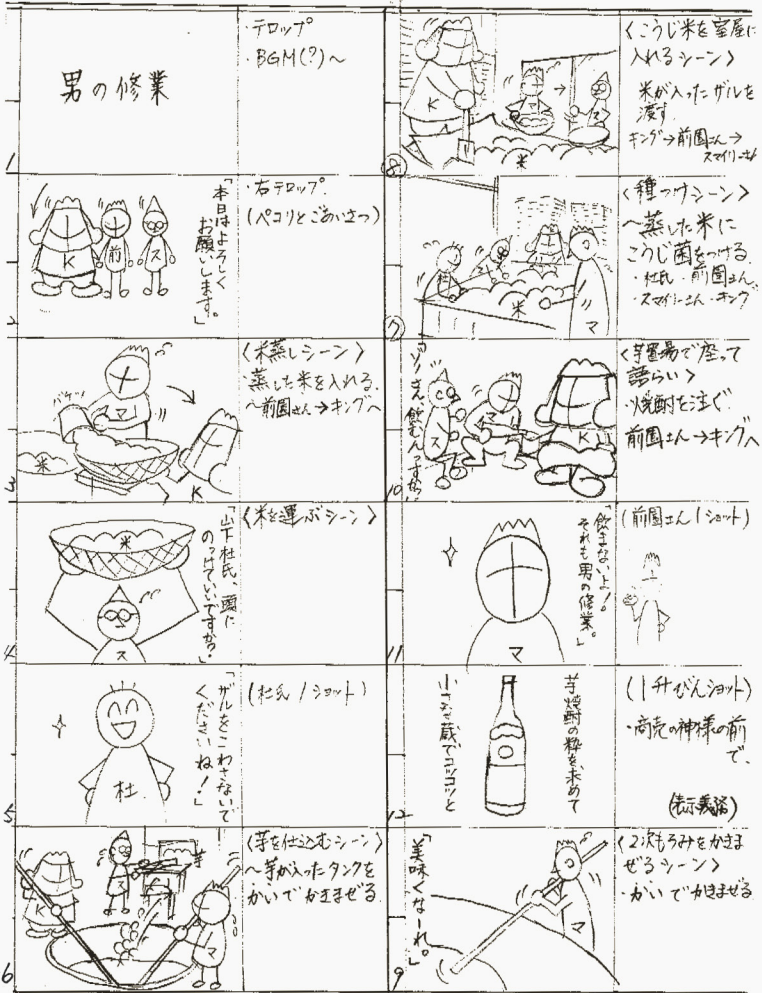 男の修業
・テロップ
・BGM(?)〜
1
K
前
ス
「本日はよろしく
お願いします。」
・右テロップ.
(ペコリとごあいさつ)
2
バケツ
マ
米
K
<米蒸しシーン>
・蒸した米を入れる.
〜前園さん→キングへ
3
米
ス
「山下杜氏、頭に
のっけていいですか?」
<米を運ぶシーン>
4
杜
「ザルをこわさないで
くださいね!」
(杜氏1ショット)
5
K
ス
芋
マ
<芋を仕込むシーン>
〜芋が入ったタンクを
かいでかきまぜる
6
K
マ
ス
米
<こうじ米を室屋に
入れるシーン>
米が入ったザルを
渡す.
キング→前園さん→
スマイリーさん
8
杜
ス
K
米
マ
<種つけシーン>
〜蒸した米に
こうじ菌をつける.
・杜氏・前園さん
・スマイリーさん・キング
7
「ゾノさん、飲むんっすか?」
ス
マ
K
<芋置場で座って
語らい>
・焼酎を注ぐ.
前園さん→キングへ
10
マ
「飲まないよ!。
それも男の修業。」
(前園さん1ショット)
11
芋焼酎の粋を求めて
小さな蔵でコツコツと
(1升びんショット)
・商売の神様の前
で、
(表示義務)
12
「美味くなーれ。」
マ
<2次もろみをかきま
ぜるシーン>
・かいでかきまぜる
9